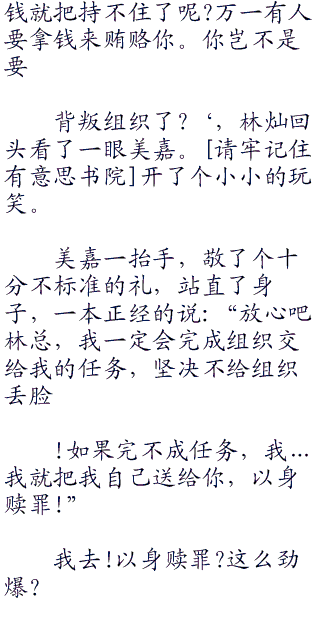 钱就把持不住了呢?万一有人
要拿钱来贿赂你。你岂不是
要
背叛组织了?‘，林灿回
头看了一眼美嘉。[请牢记住
有意思书院]开了个小小的玩
笑。
美嘉一抬手，敬了个十
分不标准的礼，站直了身
子，一本正经的说:“放心吧
林总，我一定会完成组织交
给我的任务，坚决不给组织
丢脸
!如果完不成任务，我...
我就把我自己送给你，以身
赎罪!”
我去!以身赎罪?这么劲
爆?